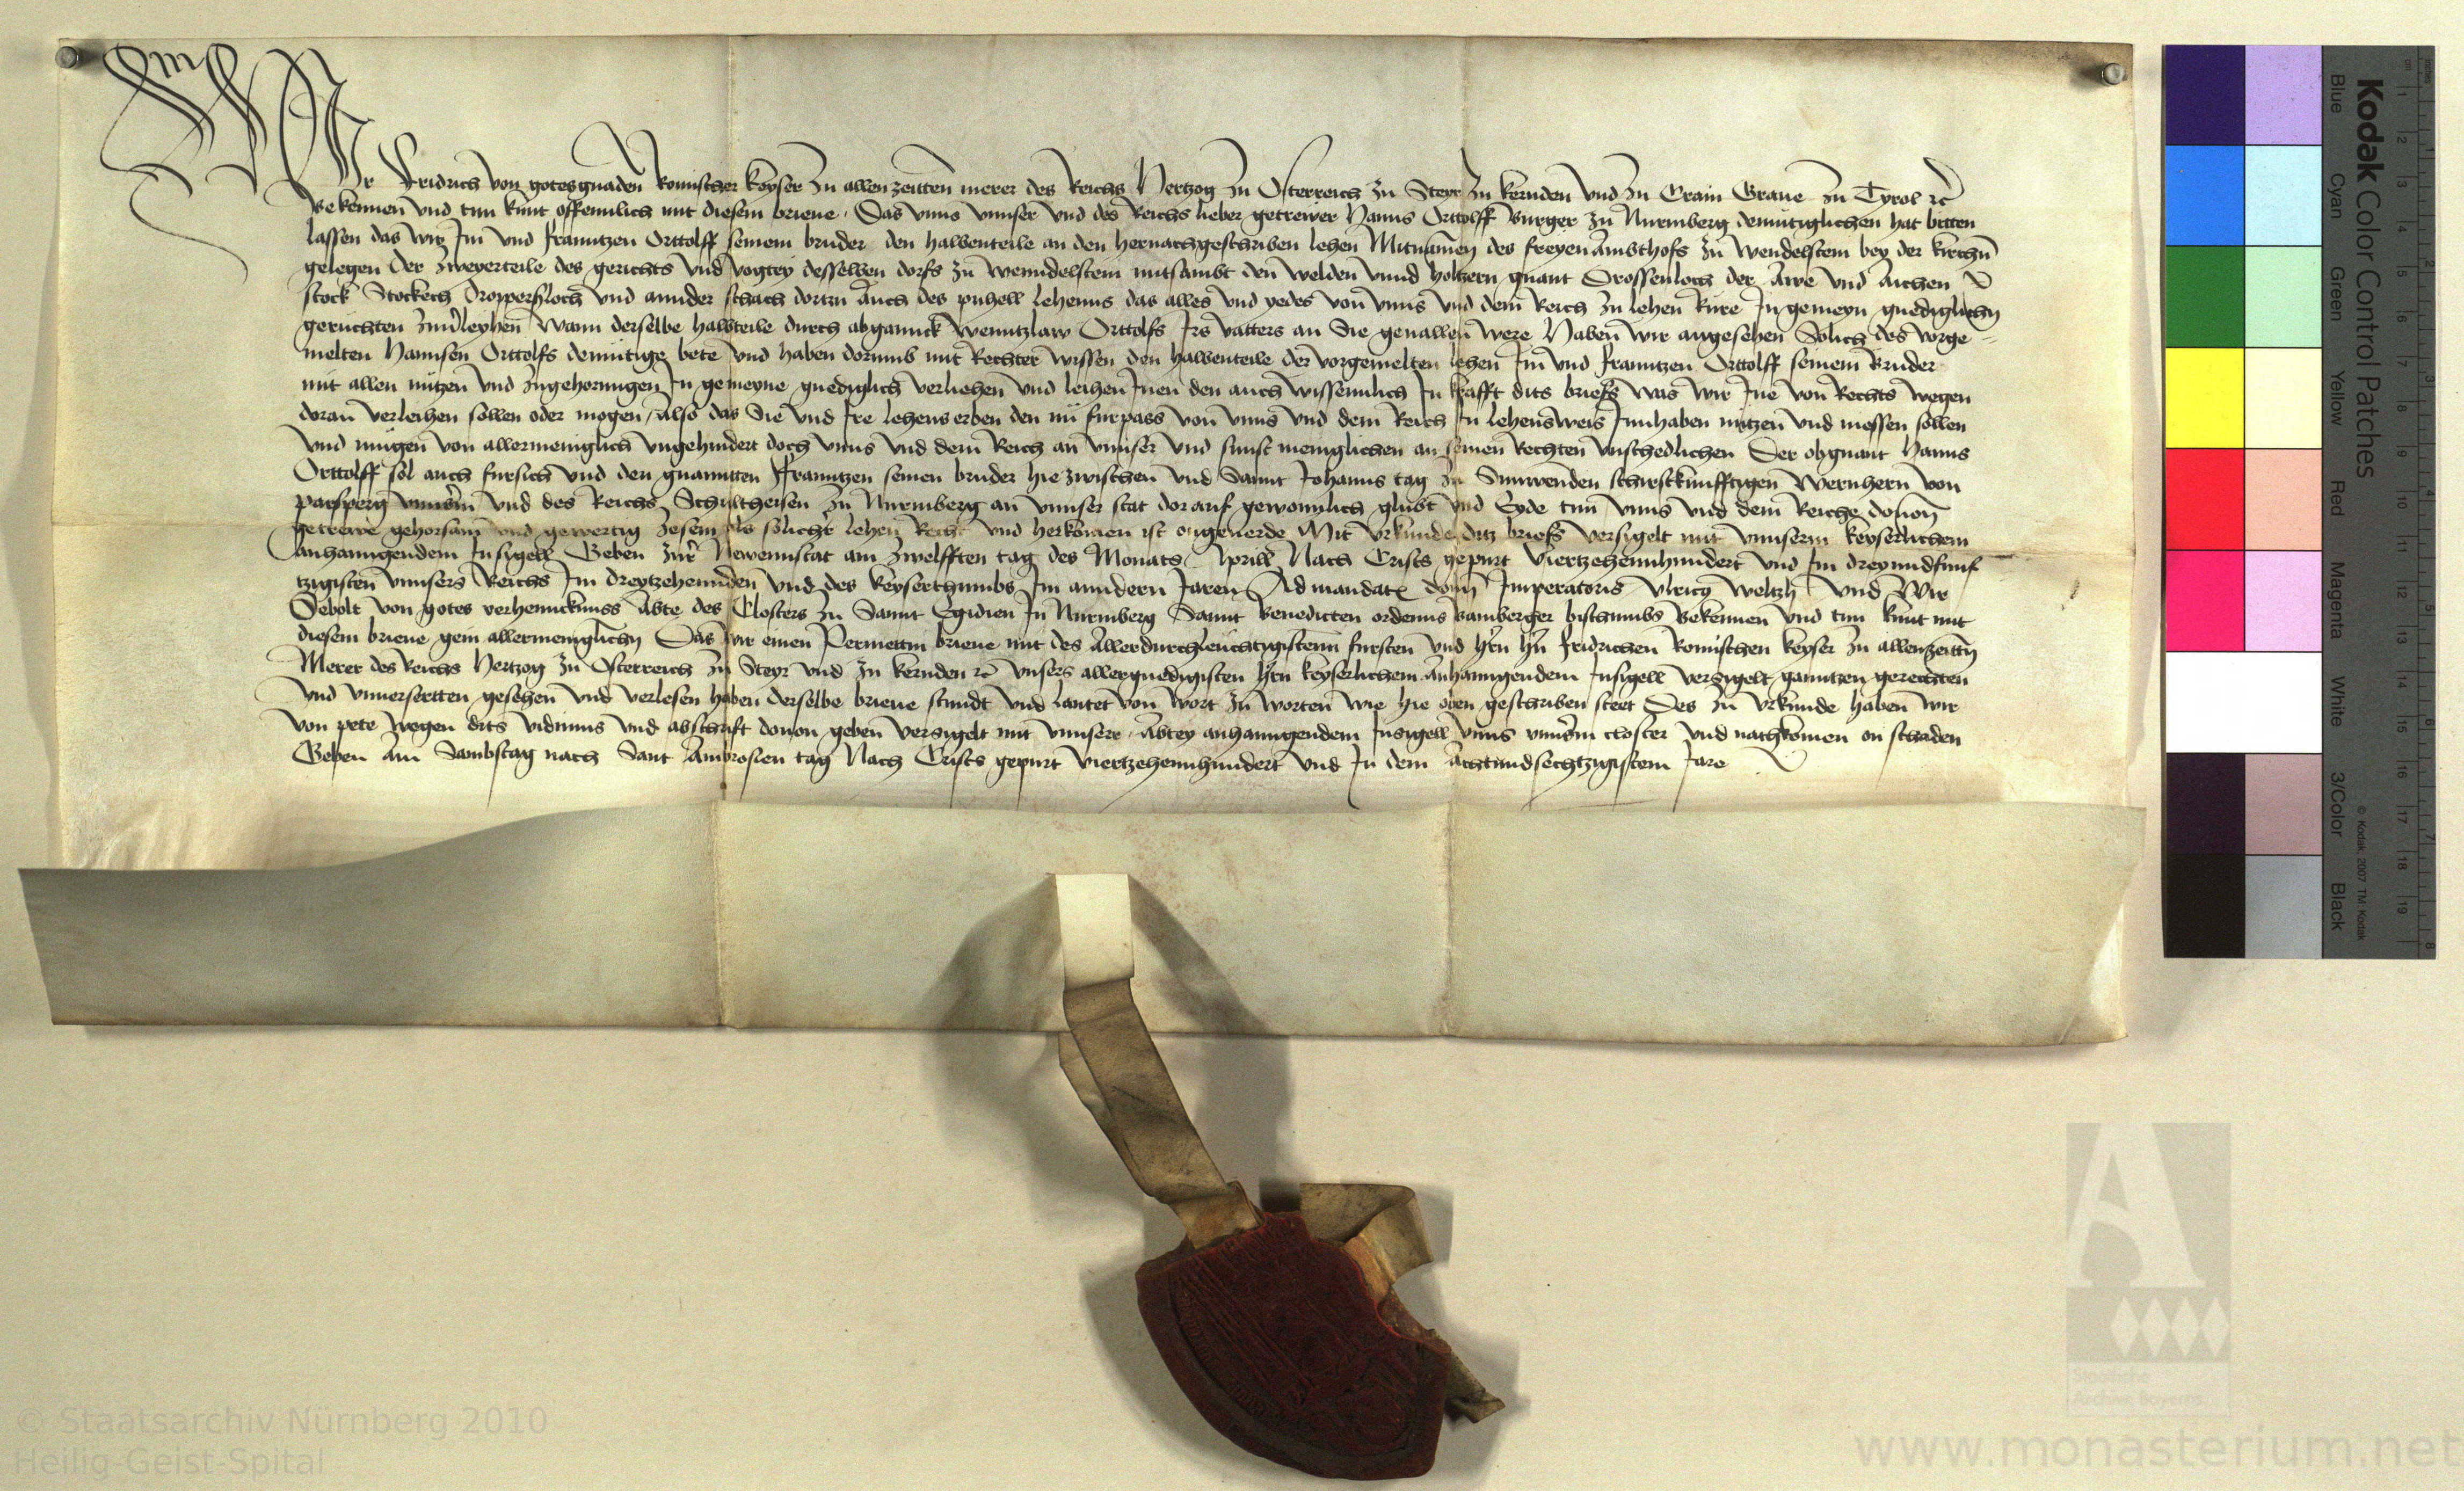 Wir Fridrich von gotes gnaden Romischer Keyser zu allen zeitten merer des Reichs Hertzog zu Osterreich zu Steyr zu kernden und zu Crain Graue zu Tyrol ꝛc
Bekennen und tun kunt offennlich mit diesem brieue Das unns unnser und des Reichs lieber getrewer Hanns Ortolff Burger zu Nuremberg demutiglichen hat bitten
lassen das wir Im und franntzen Ortolff seinem bruder den halbenteile an den hernachgeschriben lehen Mitnamen des freyen Ambthofs zu Wendelstein bey der kirchn̄
gelegen Der zweyerteile des gerichts und vogtey desselben dorfs zu Wenndelstein mitsambt den welden unnd holtzern gnant Drossenloch der Awe und Aichen
stock Stockech Droppersloch und annder schach dortzu Auch des puhell lehenns das alles und yedes von unns und dem Reich zu lehen Rure In gemeyn gnediglichn̄
geruchten zuuͦerleyhen Wann derselbe halbteile durch abgannck Wenntzlaw Ortolfs Irs vatters an Sie geuallen were Haben wir angesehen Solich des vorge
melten Hannsen Ortolfs demutige bete und haben dorumb mit Rechter wissen den halbenteile der vorgemelten lehen Im und franntzen Ortolff seinem Bruder
mit allen nutzen und zugehorungen In gemeyne gnediglich verliehen und leihen Inen den auch wissennlich In krafft dits briefs was wir Ine von Rechts wegen
doran verleihen sollen oder mogen Also das Sie und Ire lehens erben den nu furpass von unns und dem Reich In lehensweis Innhaben nutzen und niessen sollen
und mugen von allermeniglich ungehindert doch unns und dem Reich an unnser und sunst meniglichen an seinen Rechten unschedlichen Der obgnant Hanns
Ortolff sol auch fursich und den gnannten Franntzen seinen bruder hie zwischen und Sannt Johanns tag zu Sunnwenden schirstkunfftigen Wernhern von
parsperg unnserm̄ und des Reichs Schultheisen zu Nuremberg an unnser stat dorauf gewonnlich glubt und Eyde tun unns und dem Reiche douon̄
getrewe gehorsam und gewertig zesein als solicher lehen Recht und herkomen ist ongeuerde Mit urkunde ditz briefs versigelt mit unnserm keyserlichem
anhanngendem Insigell Geben zur Newennstat am zwelfften tag des Monats Aprill Nach Crists gepurt Viertzehennhundert und Im dreyundfunf
tzigisten unnsers Reichs Im dreytzehennden und des keyserthumbs Im anndern Jaren Ad mandatū domī Imperatoris Ulricg Weltzli Und Wir
Sebolt von gotes verhenncknuss Abte des Closters zu Sannt Egidien In Nuremberg Sannt Benedicten ordenns Bamberger bisthumbs Bekennen und tun kunt mit
diesem brieue gein allermeniglichn̄ Das wir einen Permettin brieue mit des Allerdurchleuchtigistenn fursten und hr̄n hn̄ fridrichen Romischen keyser zu allenzeittn̄
Merer des Reichs Hertzog zu Osterreich zu Steyr und zu kernden ꝛc unsers allergnedigisten hr̄n keyserlichem anhanngendem Insigell versigelt ganntzen gerechten
und unuersertten gesehen und verlesen haben derselbe brieue stundt und lautet von wort zu worten wie hie oben geschriben steet Des zu urkunde haben wir
von pete wegen dits vidimus und abschrift douon geben versigelt mit unnsere Abtey anhanngendem Insigell unns unnserm̄ closter und nachkomen on schaden
Geben am Sambstag nach Sant Ambrosien tag Nach Crists gepurt Viertzehennhundert und In dem Achtundsechtzigistem Jare
Kodak Color Control Patches
Blue Cyan Green Yellow Red Magenta White 3/Color Black
© Kodak, 2007 TM Kodak
© Staatsarchiv Nürnberg 2010
Heilig-Geist-Spital
Staatliche
Archive Bayerns
www.monasterium.net